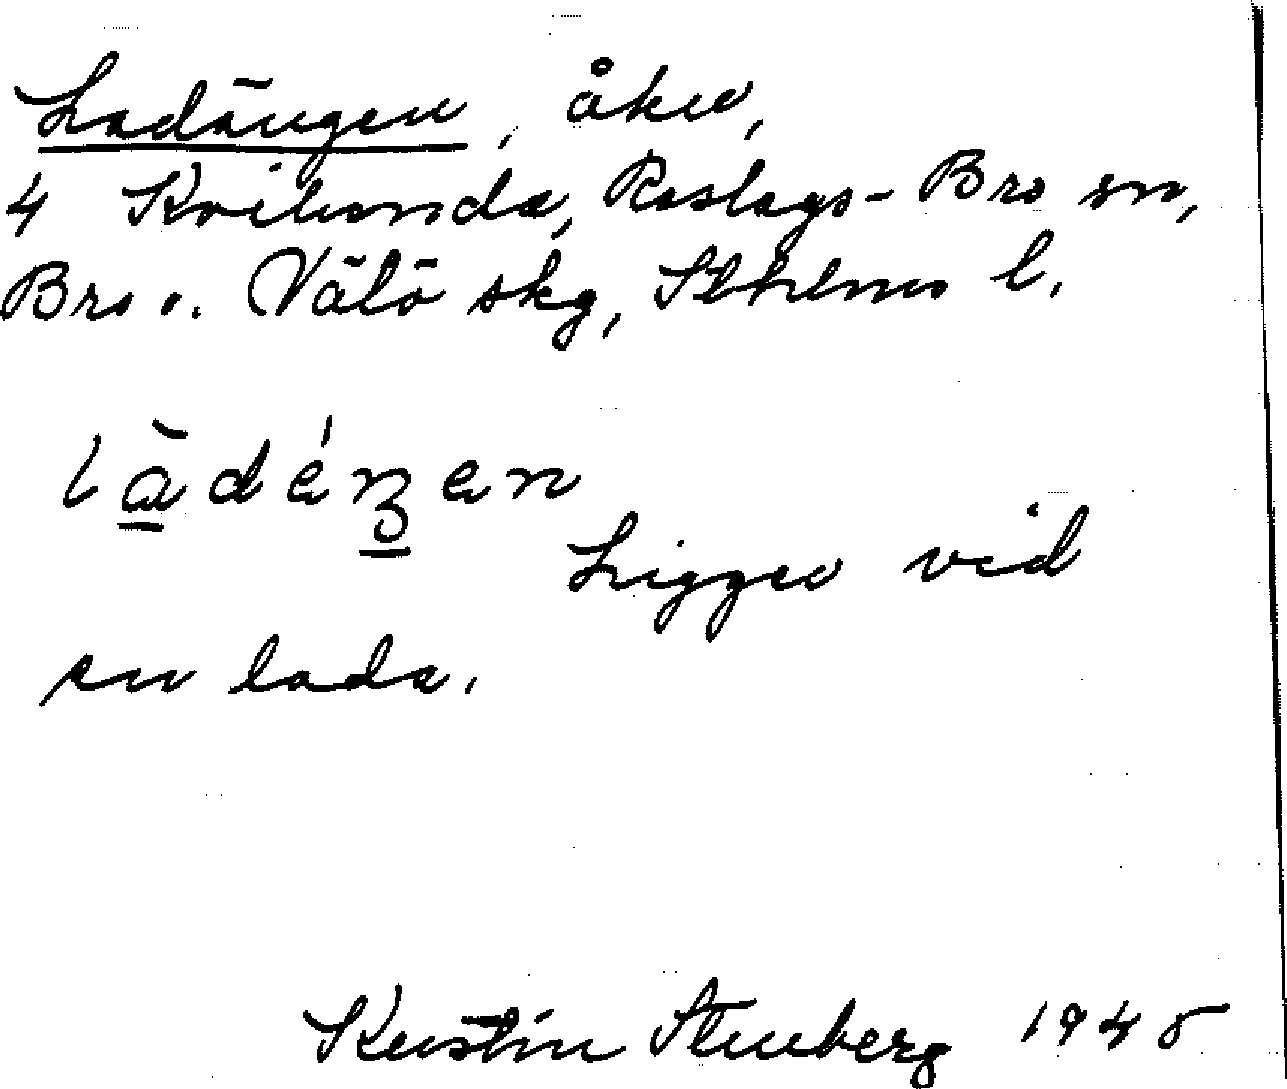 Ladängen, åker,
4 Kvilunda, Roslags-Bro sn,
Bro o. Vätö skg, Sthlms l.
làdéŋen
Ligger vid
en lada.
Kerstin Stenberg 1945